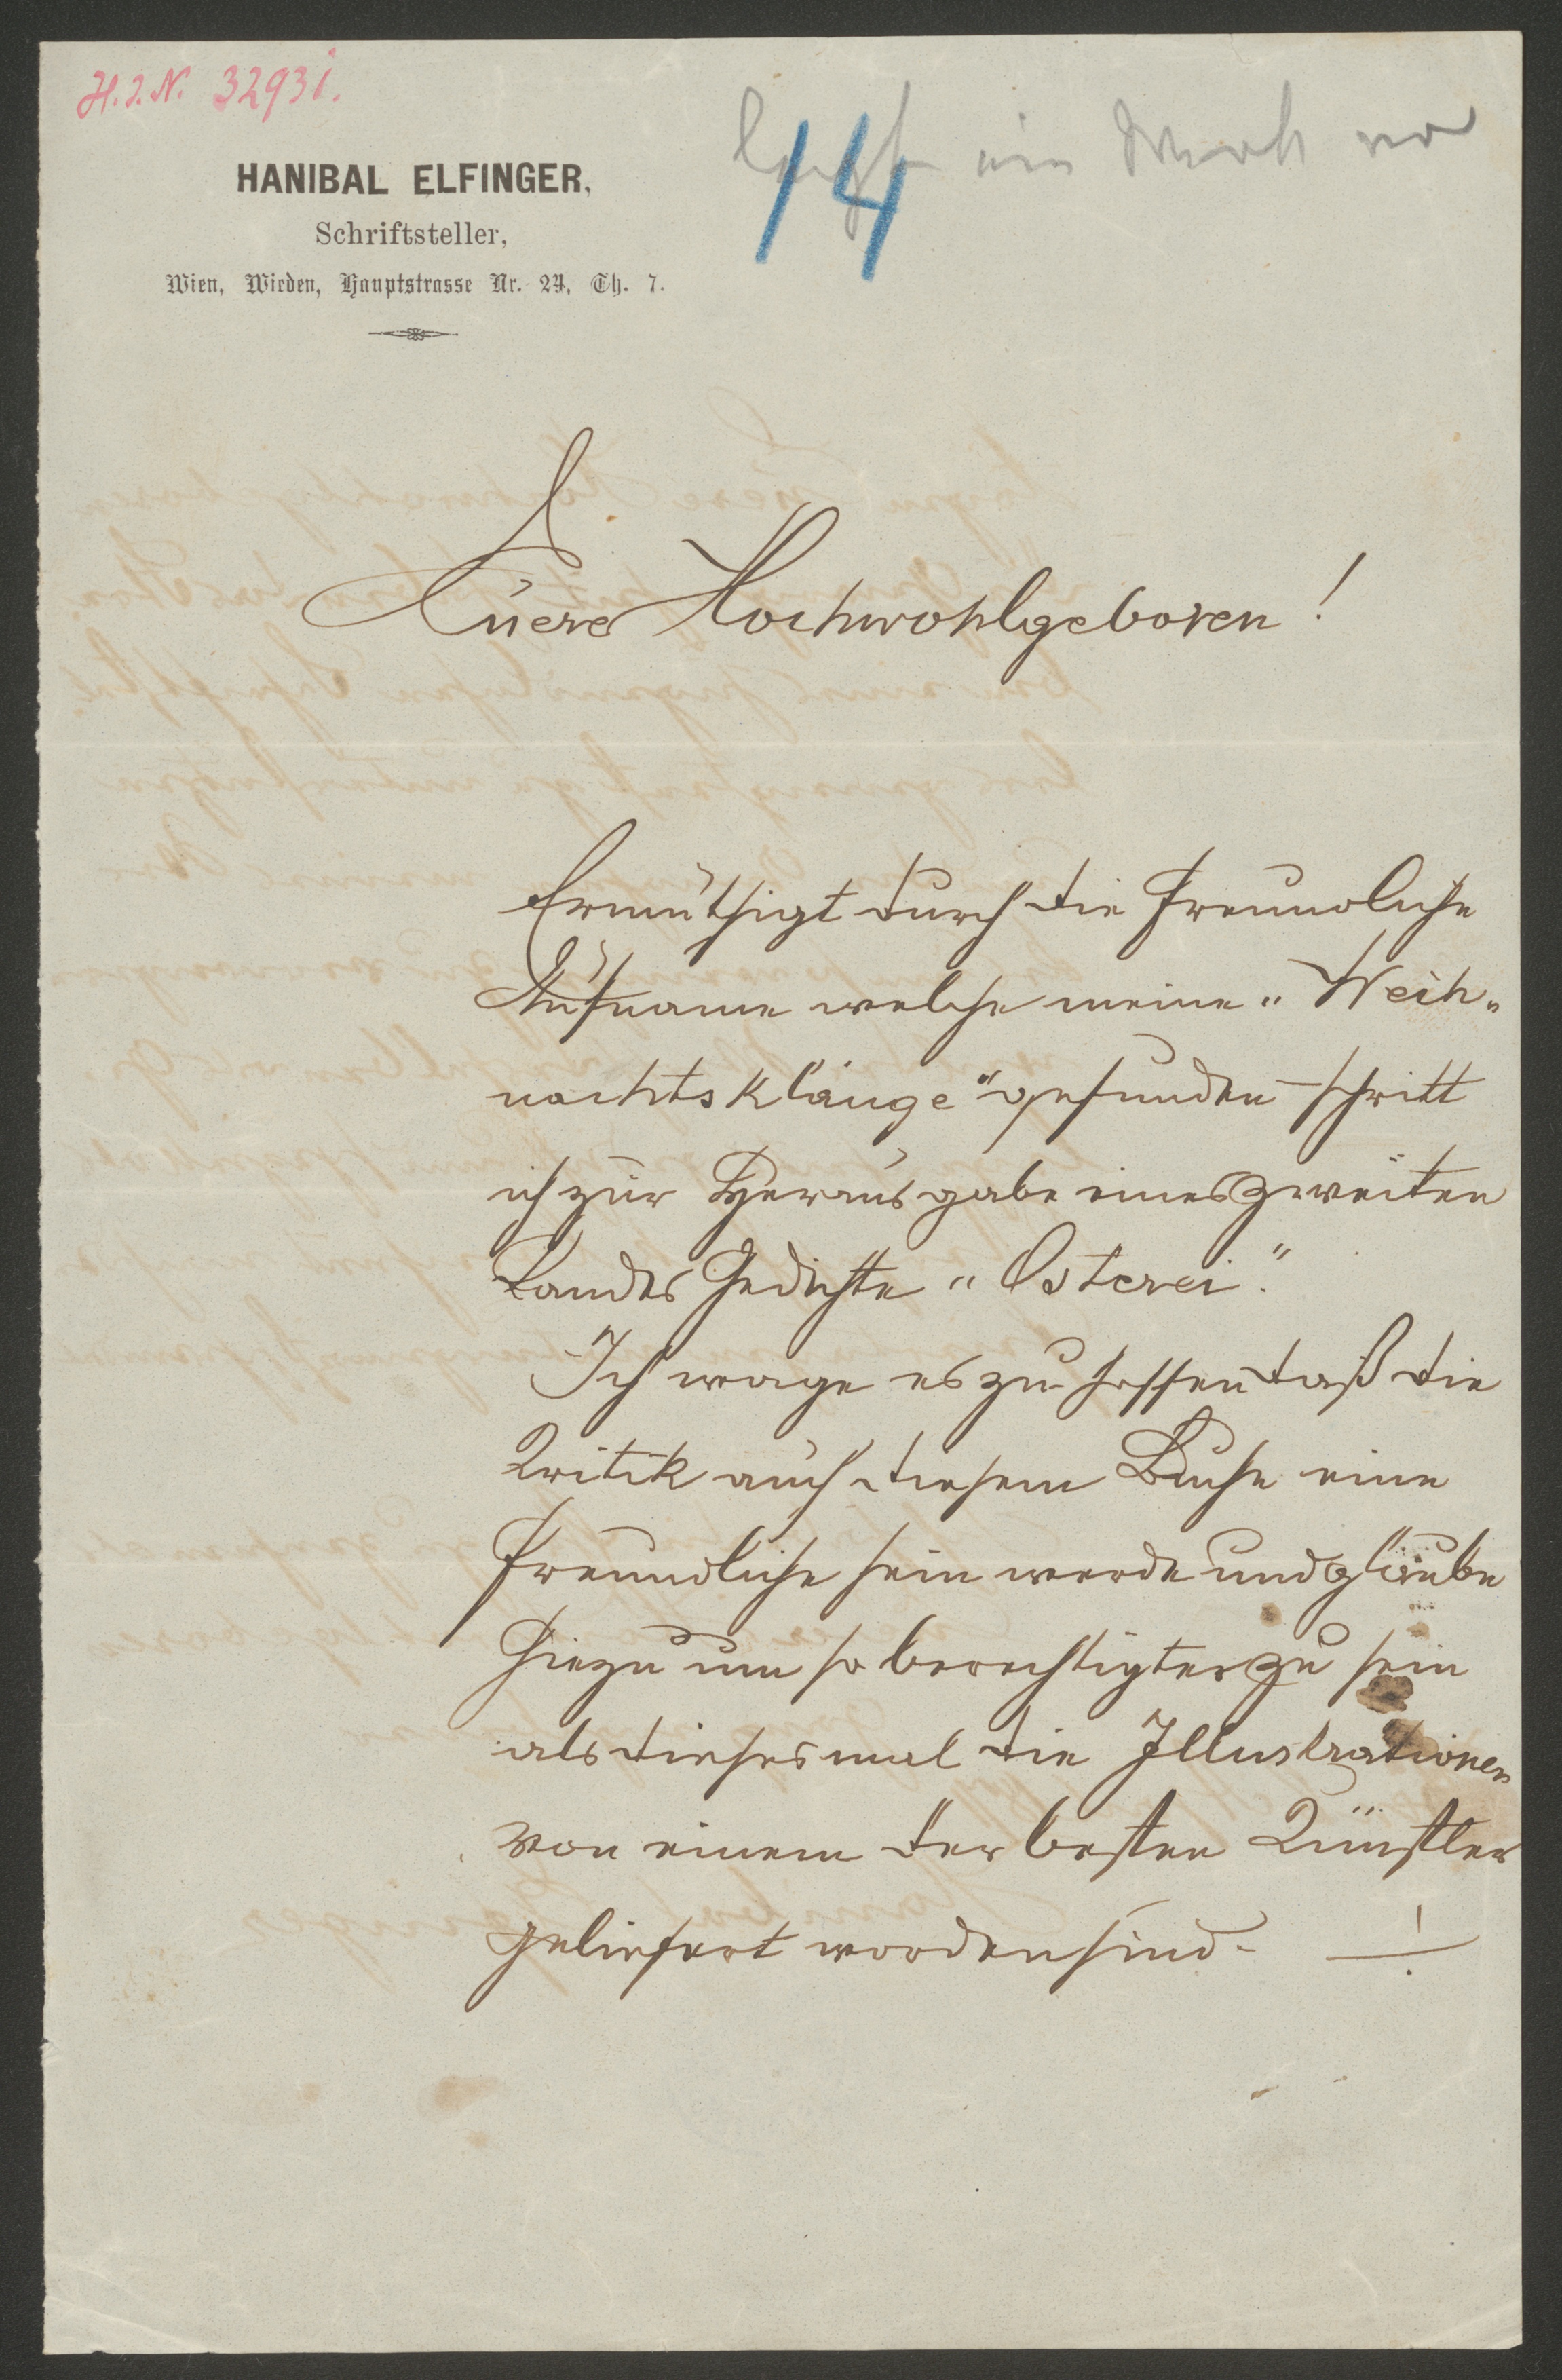 H.I.N. 32931.
14
HANIBAL ELFINGER,
Schriftsteller,
Wien, Wieden, Hauptstrasse Nr. 24, Th. 7.
Euere Hochwohlgeboren!
Ermuthigt durch die freundliche
Aufname welche meine „Weih-
nachtsklänge" gefunden schritt
ich zur Herausgabe eines zweiten
Bandes Gedichte „Osterei".
Ich wage es zu hoffen daß die
Kritik auch diesem Buche eine
freundliche sein werde und glaube
hiezu um so berechtigter zu sein
als diesesmal die Illustrationen
von einem der besten Künstler
geliefert worden sind. —